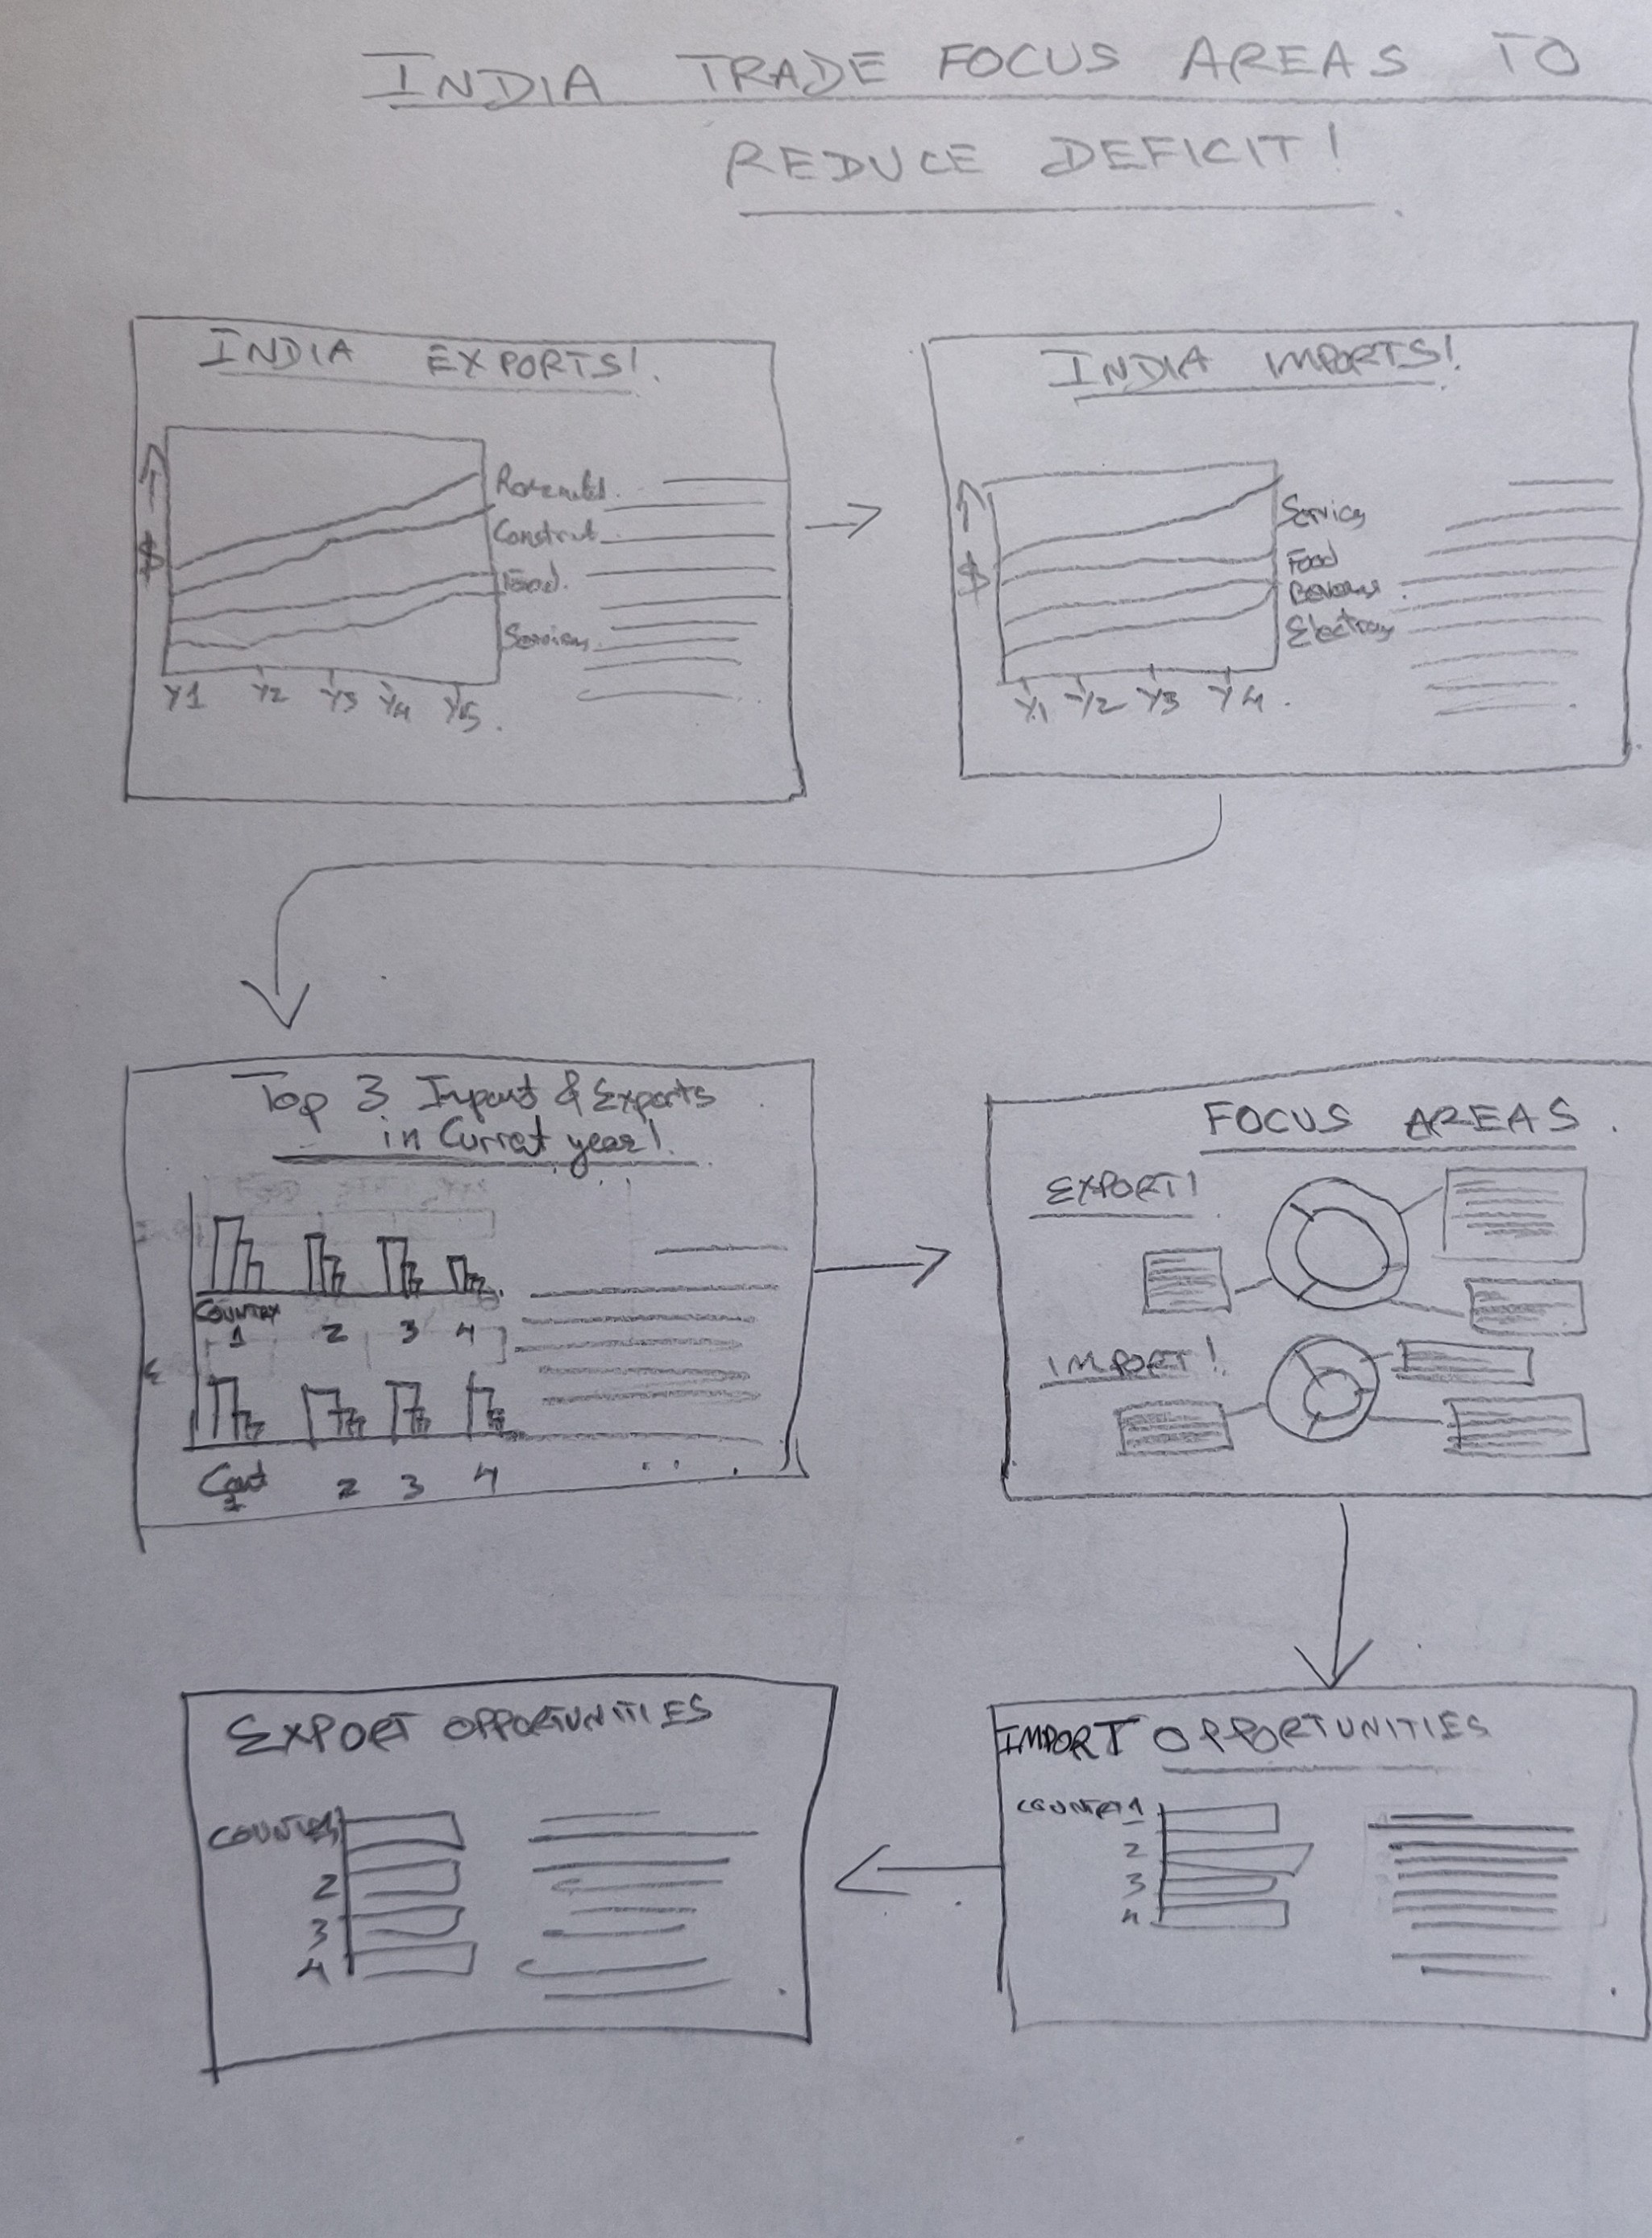 INDIA TRADE FOCUS AREAS TO
REDUCE DEFICIT!
INDIA EXPORTS!
$
Construt
Food
Services
Y1 Y2 Y3 Y4 Y5
INDIA IMPORTS!
$
Services
Food
Electrony
Y1 Y2 Y3 Y4
Top 3 Import & Exports
in Current year!
COUNTRY
1 2 3 4
2 3 4
FOCUS AREAS
EXPORT!
IMPORT!
IMPORT OPPORTUNITIES
COUNTRY 1
2
3
4
EXPORT OPPORTUNITIES
2
3
4